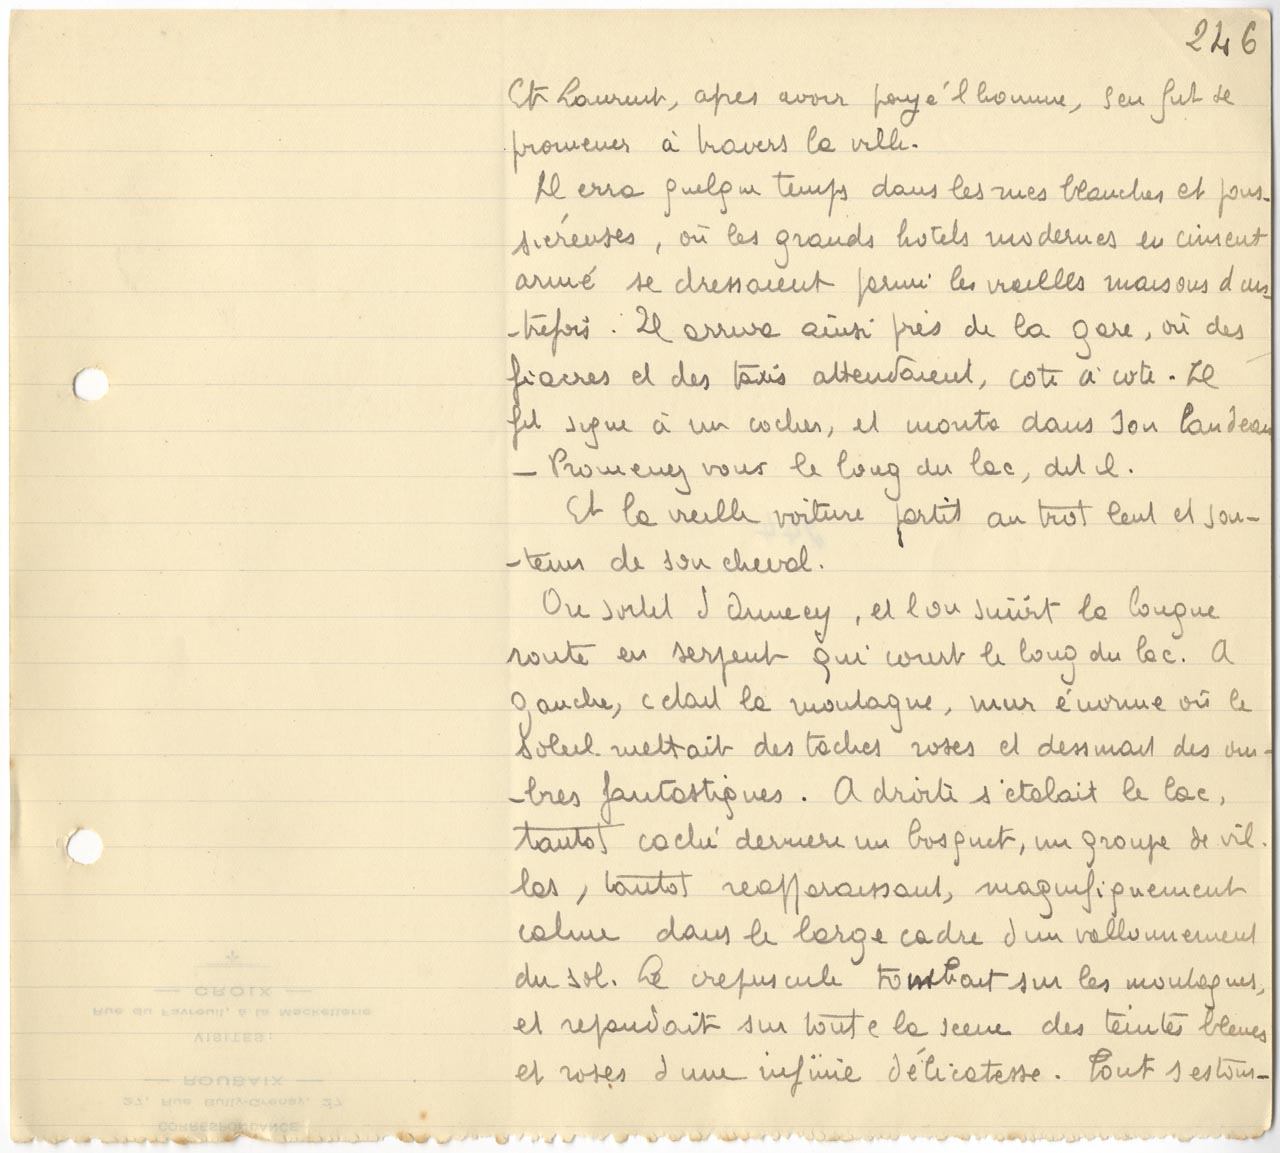 246
Et Laurent, apres avoir payé l'homme, s'en fut se
promener à travers la ville.
Il erra quelque temps dans les rues blanches et pous-
siéreuses, où les grands hotels modernes en ciment
armé se dressaient parmi les vieilles maisons d'au-
-trefois. Il arriva ainsi près de la gare, où des
fiacres et des taxis attendaient, cote à cote. Il
fit signe à un cocher, et monta dans son landeau
- Promenez vous le long du lac, dit il.
Et la vieille voiture partit au trot lent et sou-
-tenu de son cheval.
On sortit d'Annecy, et l'on suivit la longue
route en serpent qui court le long du lac. A
gauche, c'etait la montagne, mur énorme où le
soleil mettait des taches roses et dessinait des om-
-bres fantastiques. A droite s'etalait le lac,
tantot caché derriere un bosquet, un groupe de vil-
las, tantot reapparaissant, magnifiquement
calme dans le large cadre d'un vallonnement
du sol. Le crepuscule tombait sur les montagnes,
et repandait sur toute la scene des teintes bleues
et roses d'une infinie délicatesse. Tout s'estom-
CROIX
Rue du Favreuil, à la Mackellerie
VISITES:
ROUBAIX
27, Rue Bully-Grenay, 27
CORRESPONDANCE